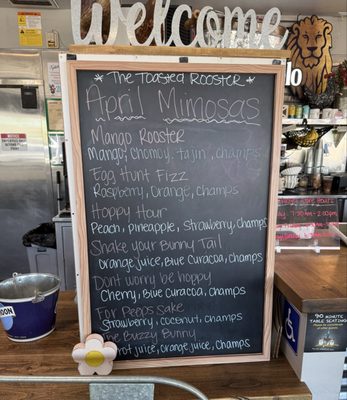 Welcome
* The Toasted Rooster *
April Mimosas
Mango Rooster
Mango, chomoy, tajin, champs
Egg Hunt Fizz
Raspberry, orange, champs
Hoppy Hour
Peach, pineapple, strawberry, champs
Shake your Bunny Tail
orange juice, Blue Curacca, champs
Dont worry be hoppy
Cherry, Blue curacca, champs
For Peeps sake
Strawberry, coconut, champs
Buzzy Bunny
rot juice, orange juice, champs
90 MINUTE
TABLE SEATING